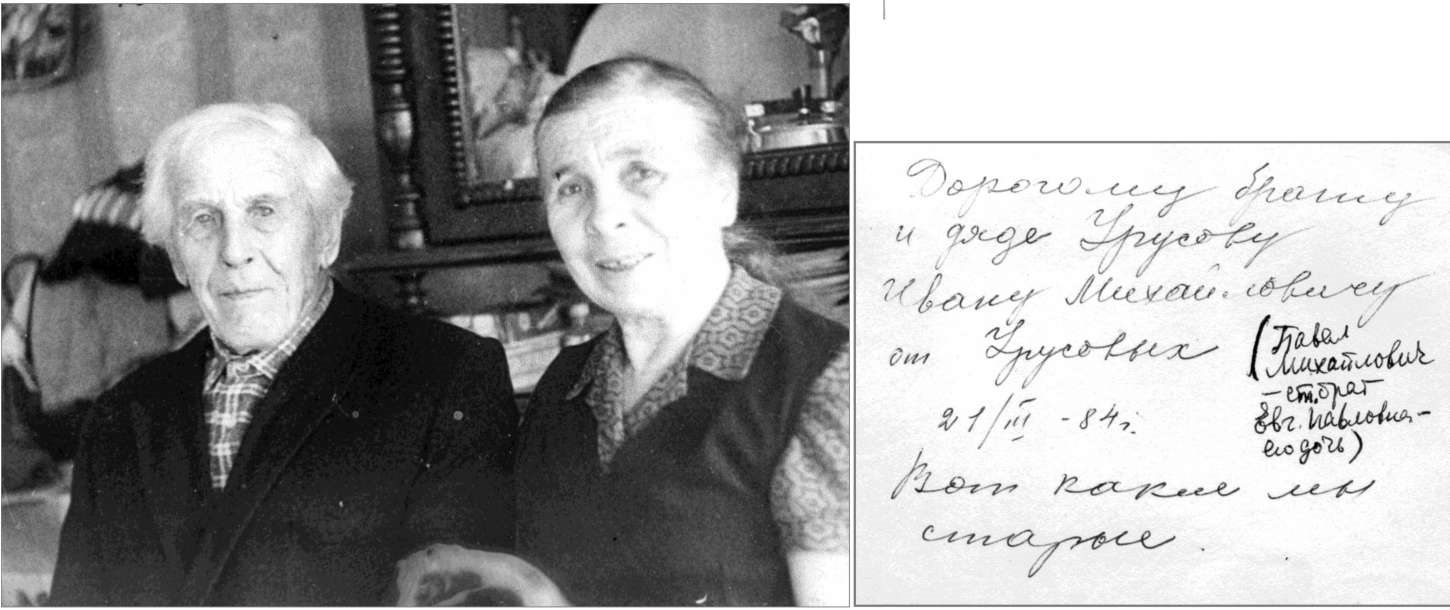 Дорогому брату
и дяде Урусову
Ивану Михайловичу
от Урусовых
21/III -84г.
Вот какие мы
старые.
(Павел
Михайлович
- ст. брат
Евг. Павловна -
его дочь)